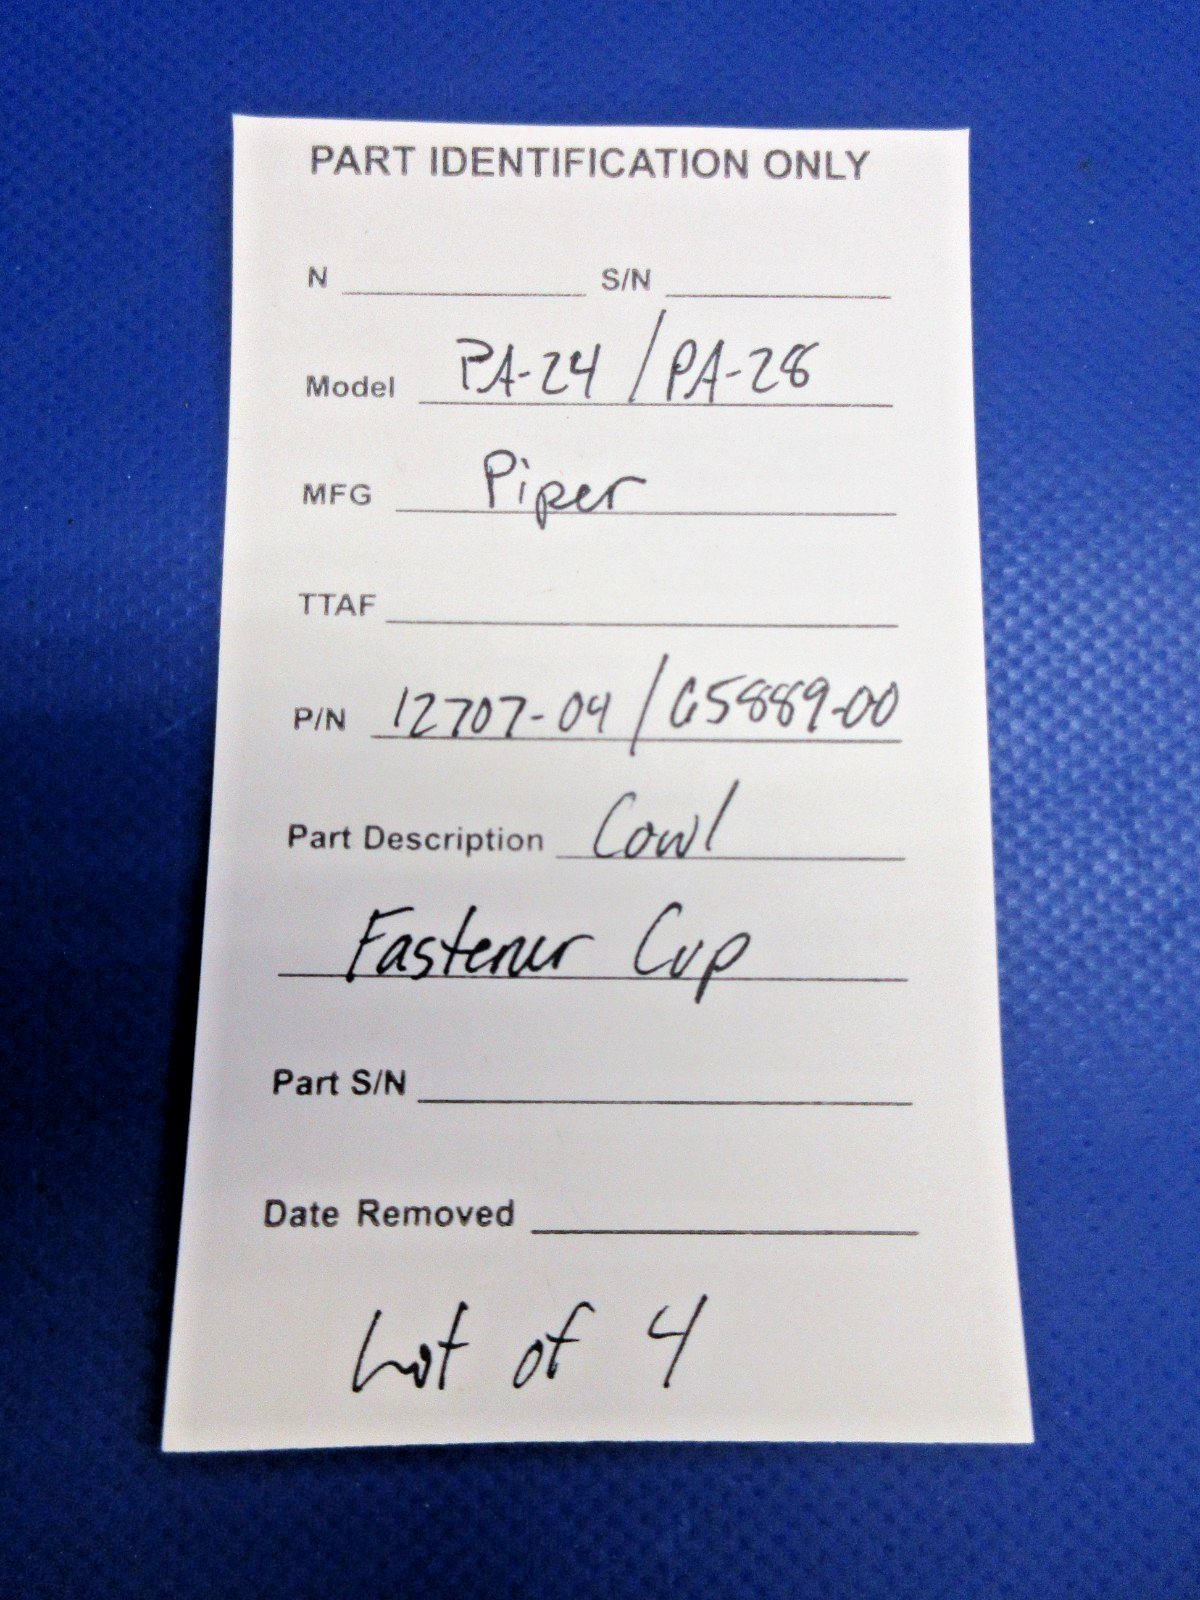 PART IDENTIFICATION ONLY
N S/N
Model PA-24 / PA-28
MFG Piper
TTAF
P/N 12707-04 / 65889-00
Part Description Cowl
Fastener Cup
Part S/N
Date Removed
Lot of 4